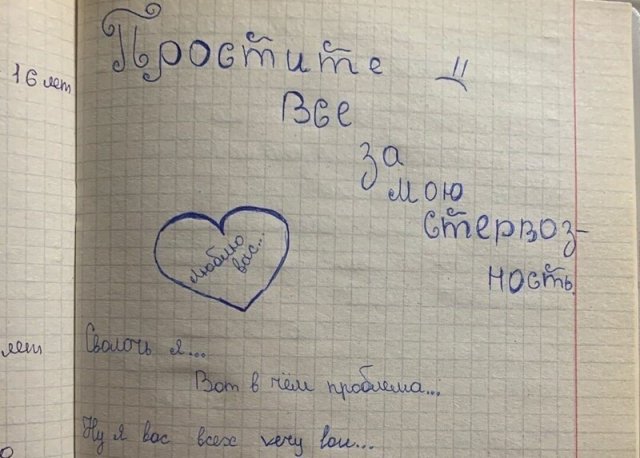 16 лет
Простите =(
Все
за
мою
стервоз-
ность.
люблю
вас...
лет
Сволочь я...
Вот в чём проблема...
Ну я вас всех very